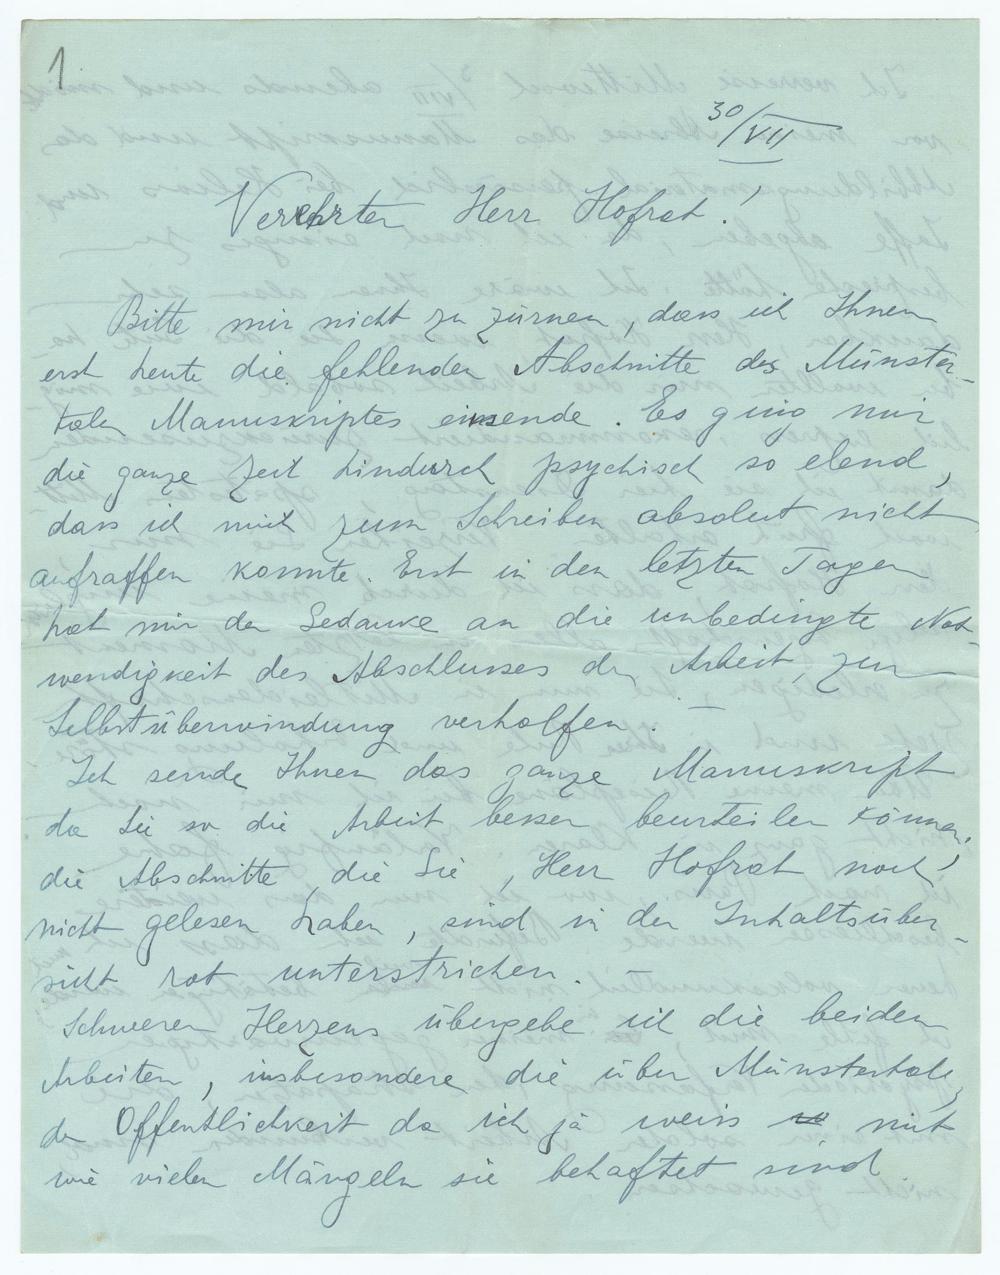 1
30/VII
Verehrter Herr Hofrat!
Bitte mir nicht zu zürnen, dass ich Ihnen
erst heute die fehlenden Abschnitte des Münster-
taler Manuskriptes einsende. Es ging mir
die ganze Zeit hindurch psychisch so elend,
dass ich mich zum Schreiben absolut nicht
aufraffen konnte. Erst in den letzten Tagen
hat mir der Gedanke an die unbedingte Not-
wendigkeit des Abschlusses der Arbeit, zur
Selbstüberwindung verholfen. –
Ich sende Ihnen das ganze Manuskript
da Sie so die Arbeit besser beurteilen können,
die Abschnitte, die Sie, Herr Hofrat noch
nicht gelesen haben, sind in der Inhaltsüber-
sicht rot unterstrichen.
Schweren Herzens übergebe ich die beiden
Arbeiten, insbesondere die über Münstertal,
der Öffentlichkeit da ich ja weiss mit
wie vielen Mängeln sie behaftet sind